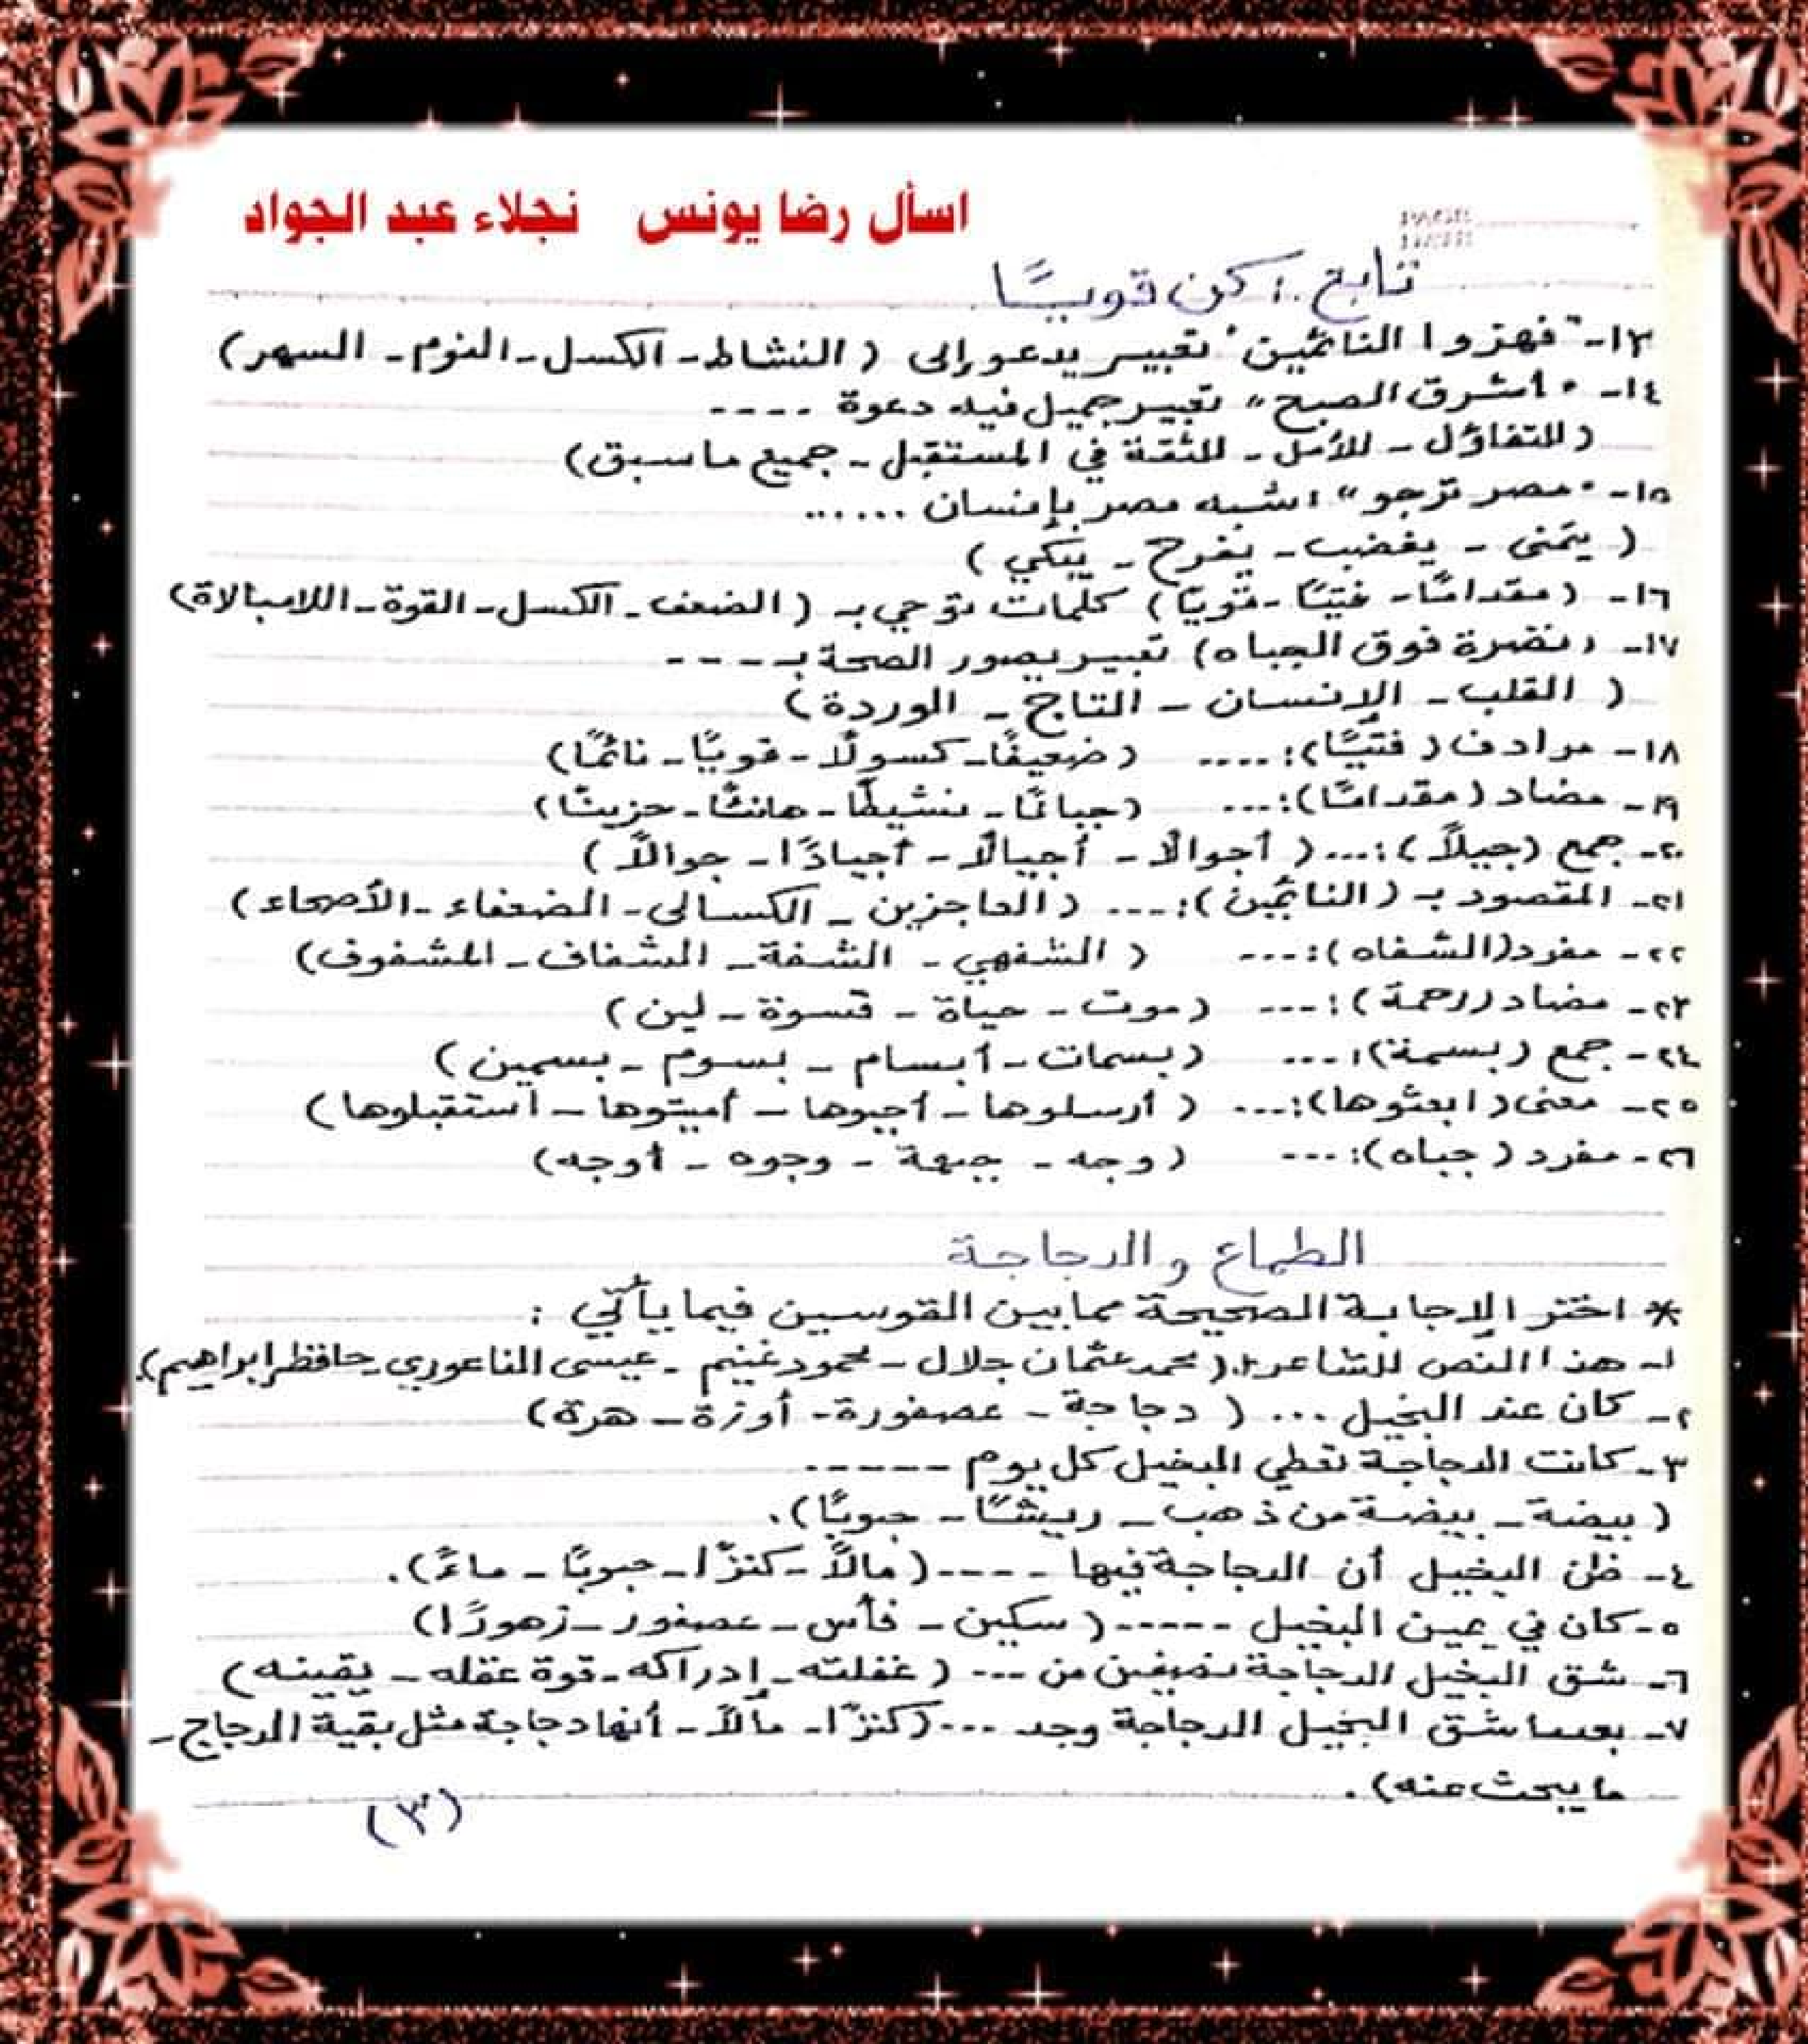 اسأل رضا يونس نجلاء عبد الجواد
PAGE
DATE
تابع : كن قويًا
١٣- "فهزوا النائمين" تعبير يدعو إلى (النشاط - الكسل - النوم - السهر)
١٤- "أشرق الصبح" تعبير جميل فيه دعوة ----
(للتفاؤل - للأمل - للثقة في المستقبل - جميع ما سبق)
١٥- "مصر ترجو" : شبه مصر بإنسان ......
(يتمنى - يغضب - يفرح - يبكي)
١٦- (مقدامًا - فتيًا - قويًا) كلمات توحي بـ (الضعف - الكسل - القوة - اللامبالاة)
١٧- (نضرة فوق الجباه) تعبير يصور الصحة بـ ----
(القلب - الإنسان - التاج - الوردة)
١٨- مرادف (فتيًّا): .... (ضعيفًا - كسولًا - قويًا - نائمًا)
١٩- مضاد (مقدامًا): ... (جبانًا - نشيطًا - هانئًا - حزينًا)
٢٠- جمع (جيلاً): ... (أجوالًا - أجيالًا - أجيادًا - جوالاً)
٢١- المقصود بـ (النائمين): ... (العاجزين - الكسالى - الضعفاء - الأصحاء)
٢٢- مفرد (الشفاه): --- (الشفهي - الشفة - الشفاف - المشفوف)
٢٣- مضاد (رحمة): --- (موت - حياة - قسوة - لين)
٢٤- جمع (بسمة): ... (بسمات - أبسام - بسوم - بسمين)
٢٥- معنى (ابعثوها): ... (أرسلوها - أجيبوها - أميتوها - استقبلوها)
٢٦- مفرد (جباه): --- (وجه - جبهة - وجوه - أوجه)
الطماع والدجاجة
* اختر الإجابة الصحيحة مما بين القوسين فيما يأتي :
١- هذا النص للشاعر : (محمد عثمان جلال - محمود غنيم - عيسى الناعوري - حافظ إبراهيم).
٢- كان عند البخيل ... (دجاجة - عصفورة - أوزة - هرة)
٣- كانت الدجاجة تعطي البخيل كل يوم -----
(بيضة - بيضة من ذهب - ريشًا - حبوبًا).
٤- ظن البخيل أن الدجاجة فيها ---- (مالاً - كنزًا - حبوبًا - ماءً).
٥- كان في يمين البخيل ----- (سكين - فأس - عصفور - زهورًا)
٦- شق البخيل الدجاجة نصفين من --- (غفلته - إدراكه - قوة عقله - يقينه)
٧- بعدما شق البخيل الدجاجة وجد ... (كنزًا - مالاً - أنها دجاجة مثل بقية الدجاج -
ما يبحث عنه).
(٣)